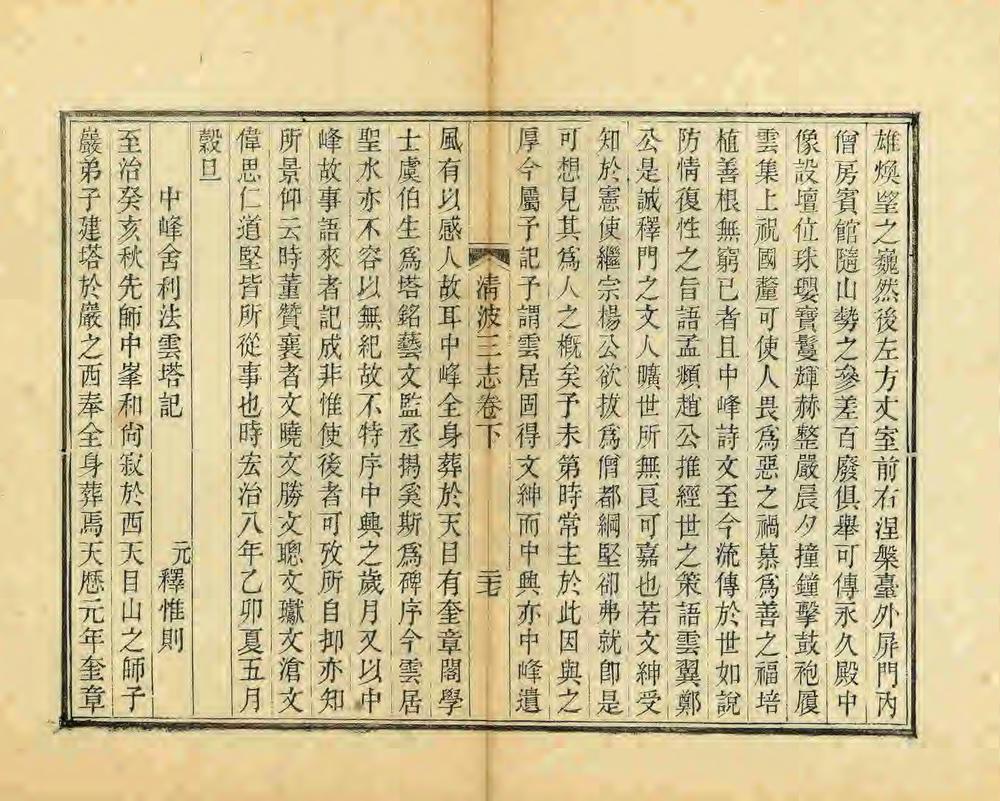 雄煥望之巍然後左方丈室前右湼槃臺外屏門內
僧房賓館隨山勢之參差百廢俱舉可傳永久殿中
像設壇位珠瓔寶鬘輝赫整嚴晨夕撞鐘擊鼓袍履
雲集上祝國釐可使人畏爲惡之禍慕爲善之福培
植善根無窮已者且中峰詩文至今流傳於世如說
防情復性之旨語孟頫趙公推經世之策語雲翼鄭
公是誠釋門之文人曠世所無良可嘉也若文紳受
知於憲使繼宗楊公欲拔爲僧都綱堅卻弗就卽是
可想見其爲人之槪矣予未第時常主於此因與之
厚今屬予記予謂雲居固得文紳而中興亦中峰遺
清波三志卷下 二七
風有以感人故耳中峰全身葬於天目有奎章閣學
士虞伯生爲塔銘藝文監丞揭奚斯爲碑序今雲居
聖水亦不容以無紀故不特序中興之歲月又以中
峰故事語來者記成非惟使後者可攷所自抑亦知
所景仰云時董贊襄者文曉文勝文聰文瓛文滄文
偉思仁道堅皆所從事也時宏治八年乙卯夏五月
穀旦
中峰舍利法雲塔記
元釋惟則
至治癸亥秋先師中峯和尙寂於西天目山之師子
巖弟子建塔於巖之西奉全身葬焉天曆元年奎章